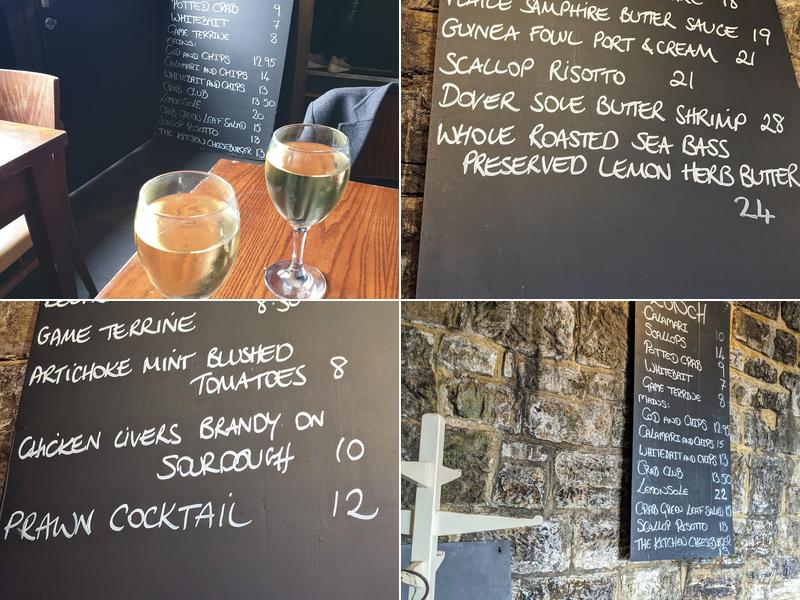 POTTED CRAB 9
WHITEBAIT 7
GAME TERRINE 8
MAINS:
COD AND CHIPS 12.95
CALAMARI AND CHIPS 14
WHITEBAIT AND CHIPS 13
CRAB CLUB 13.50
LEMONSOLE 20
CRAB GREEN LEAF SALAD 15
SCALLOP RISOTTO 18
THE KITCHEN CHEESEBURGER 13
PLAICE SAMPHIRE BUTTER SAUCE 19
GUINEA FOWL PORT & CREAM 21
SCALLOP RISOTTO 21
DOVER SOLE BUTTER SHRIMP 28
WHOLE ROASTED SEA BASS
PRESERVED LEMON HERB BUTTER
24
8.50
GAME TERRINE
ARTICHOKE MINT BLUSHED
TOMATOES 8
CHICKEN LIVERS BRANDY ON
SOURDOUGH 10
PRAWN COCKTAIL 12
LUNCH
CALAMARI
SCALLOPS 10
POTTED CRAB 14
WHITEBAIT 9
GAME TERRINE 7
MAINS: 8
COD AND CHIPS 12.95
CALAMARI AND CHIPS 15
WHITEBAIT AND CHIPS 13
CRAB CLUB 13.50
LEMONSOLE 22
CRAB GREEN LEAF SALAD 15
SCALLOP RISOTTO 18
THE KITCHEN CHEESEBURGER